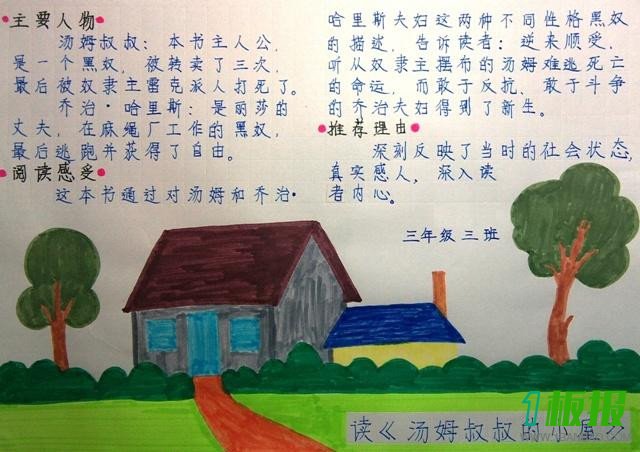 主要人物
汤姆叔叔：本书主人公，
是一个黑奴，被转卖了三次，
最后被奴隶主雷克派人打死了。
乔治·哈里斯：是丽莎的
丈夫，在麻绳厂工作的黑奴，
最后逃跑并获得了自由。
阅读感受
这本书通过对汤姆和乔治·
哈里斯夫妇这两种不同性格黑奴
的描述，告诉读者：逆来顺受，
听从奴隶主摆布的汤姆难逃死亡
的命运，而敢于反抗、敢于斗争
的乔治夫妇得到了新生。
推荐理由
深刻反映了当时的社会状态，
真实感人，深入读
者内心。
三年级三班
读《汤姆叔叔的小屋》
1板报